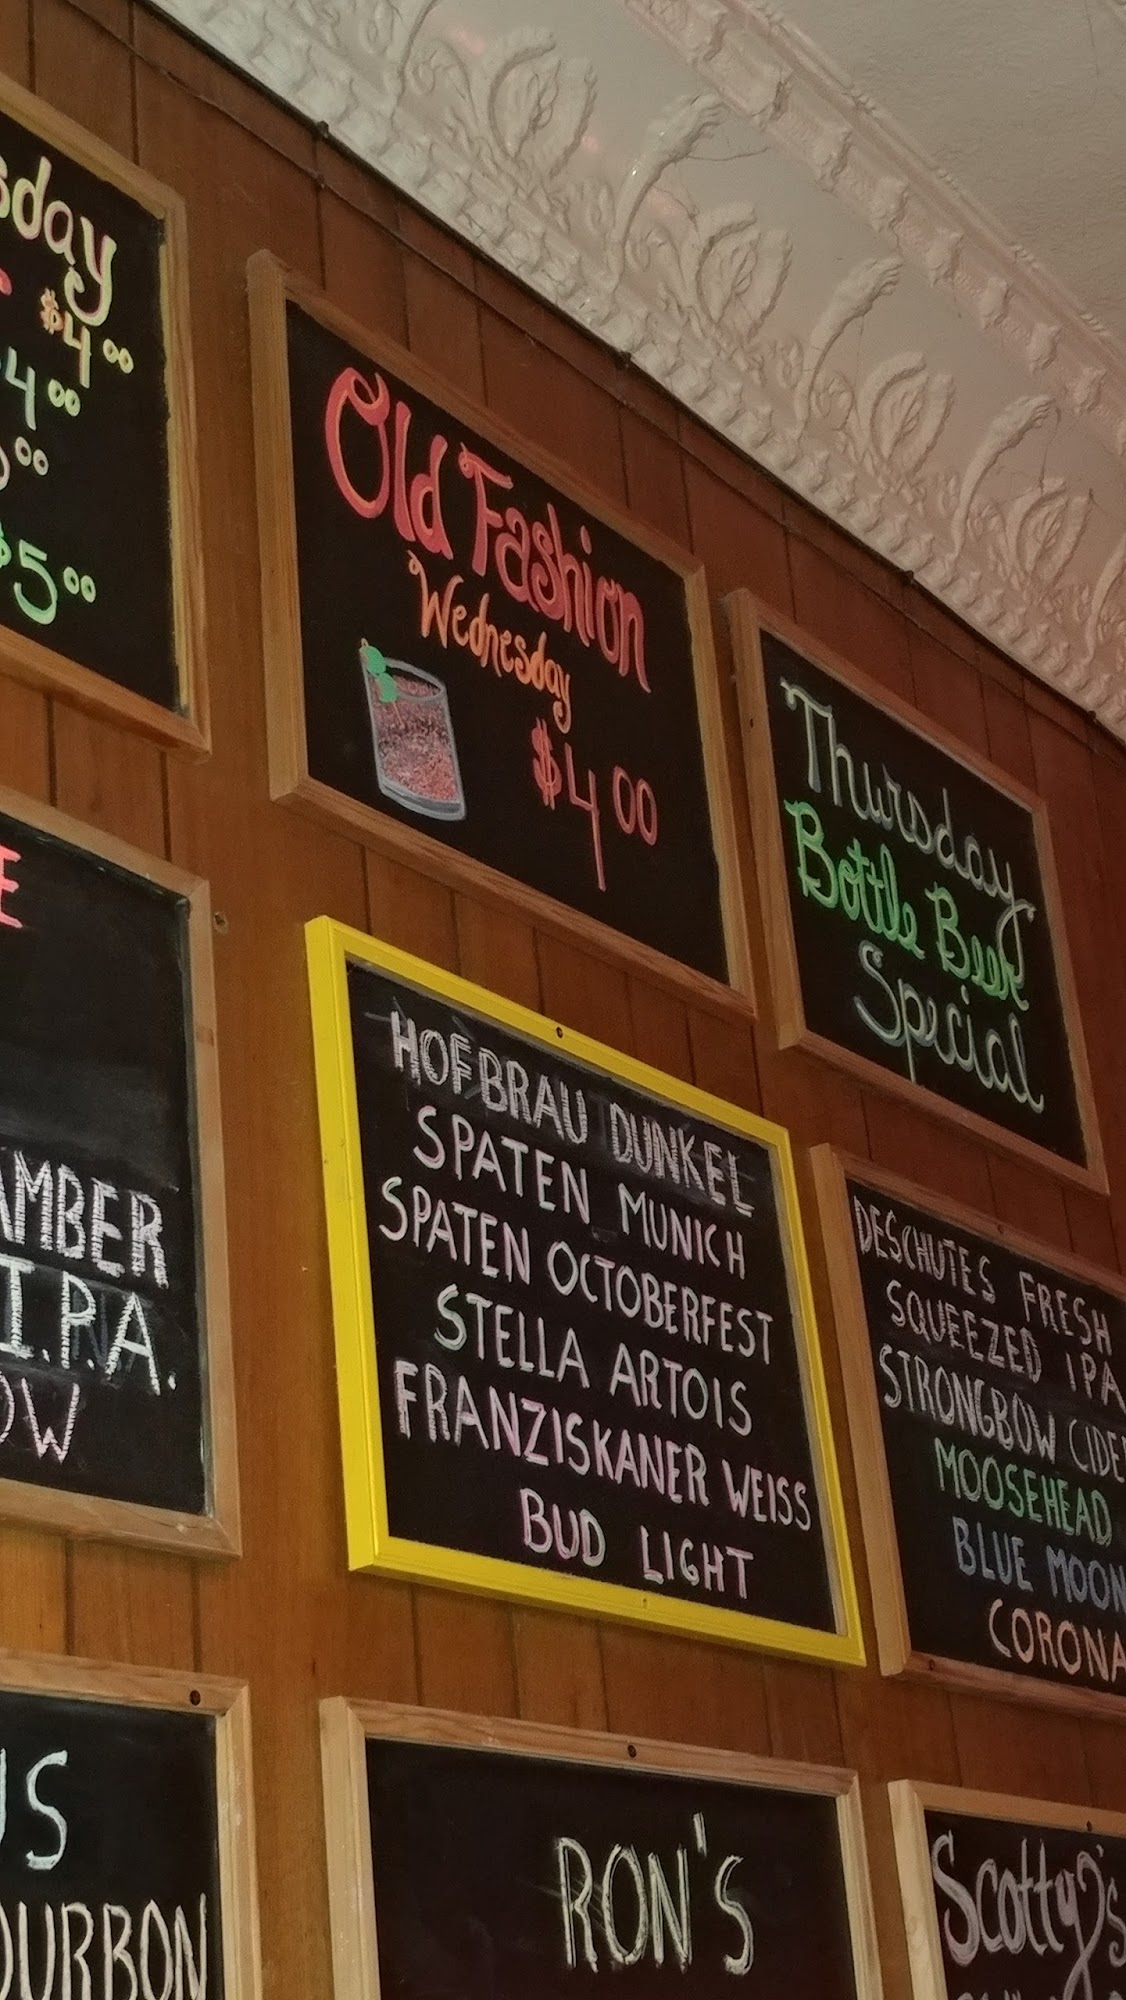 $4.00
$5.00
Old Fashion
Wednesday
$4.00
Thursday
Bottle Beer
Special
AMBER
I.P.A.
HOFBRAU DUNKEL
SPATEN MUNICH
SPATEN OCTOBERFEST
STELLA ARTOIS
FRANZISKANER WEISS
BUD LIGHT
DESCHUTES FRESH
SQUEEZED IPA
STRONGBOW CIDE
MOOSEHEAD
BLUE MOON
CORONA
OURBON
RON'S
Scotty's